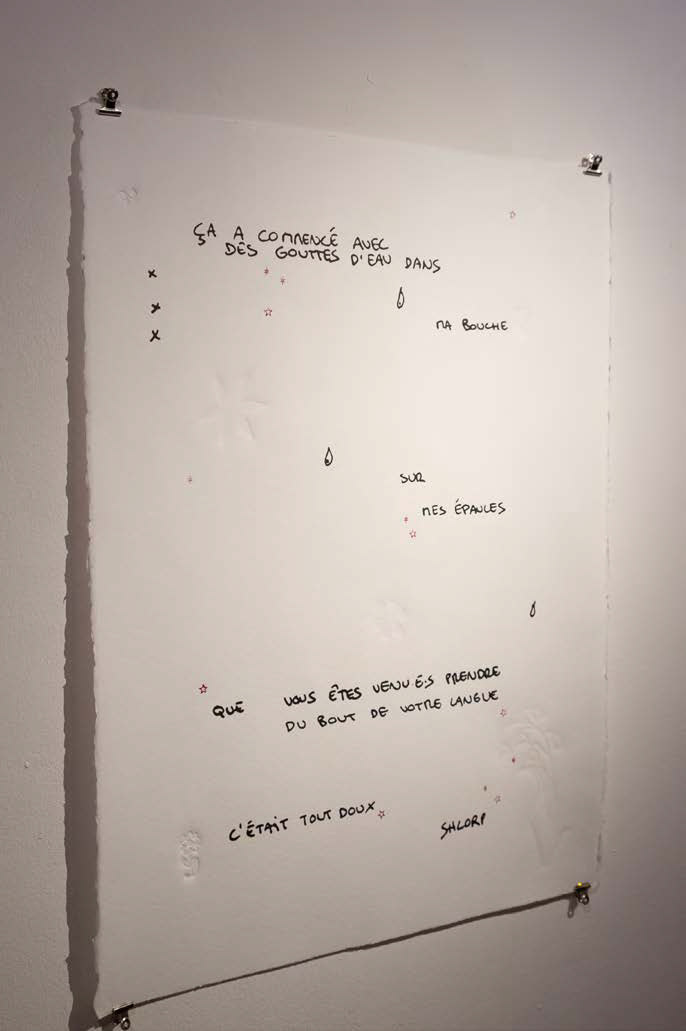 ÇA A COMMENCÉ AVEC
DES GOUTTES D'EAU DANS
MA BOUCHE
SUR
MES ÉPAULES
QUE VOUS ÊTES VENU·E·S PRENDRE
DU BOUT DE VOTRE LANGUE
C'ÉTAIT TOUT DOUX
SHLORP